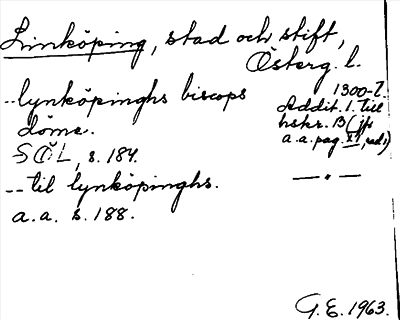 Linköping, stad och stift,
Österg. l.
--lynköpinghs biscops
döme.
SÖL, s. 184.
--til lynköpinghs.
a.a. s. 188.
1300-t.
Addit. 1. till
hskr. B (jfr
a.a. pag. XI, )
— " —
G.E. 1963.